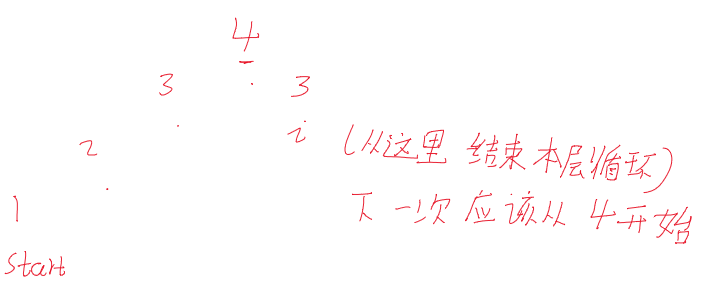 4
3 3
2 i (从这里 结束本层循环)
1 下一次应该从 4开始
start